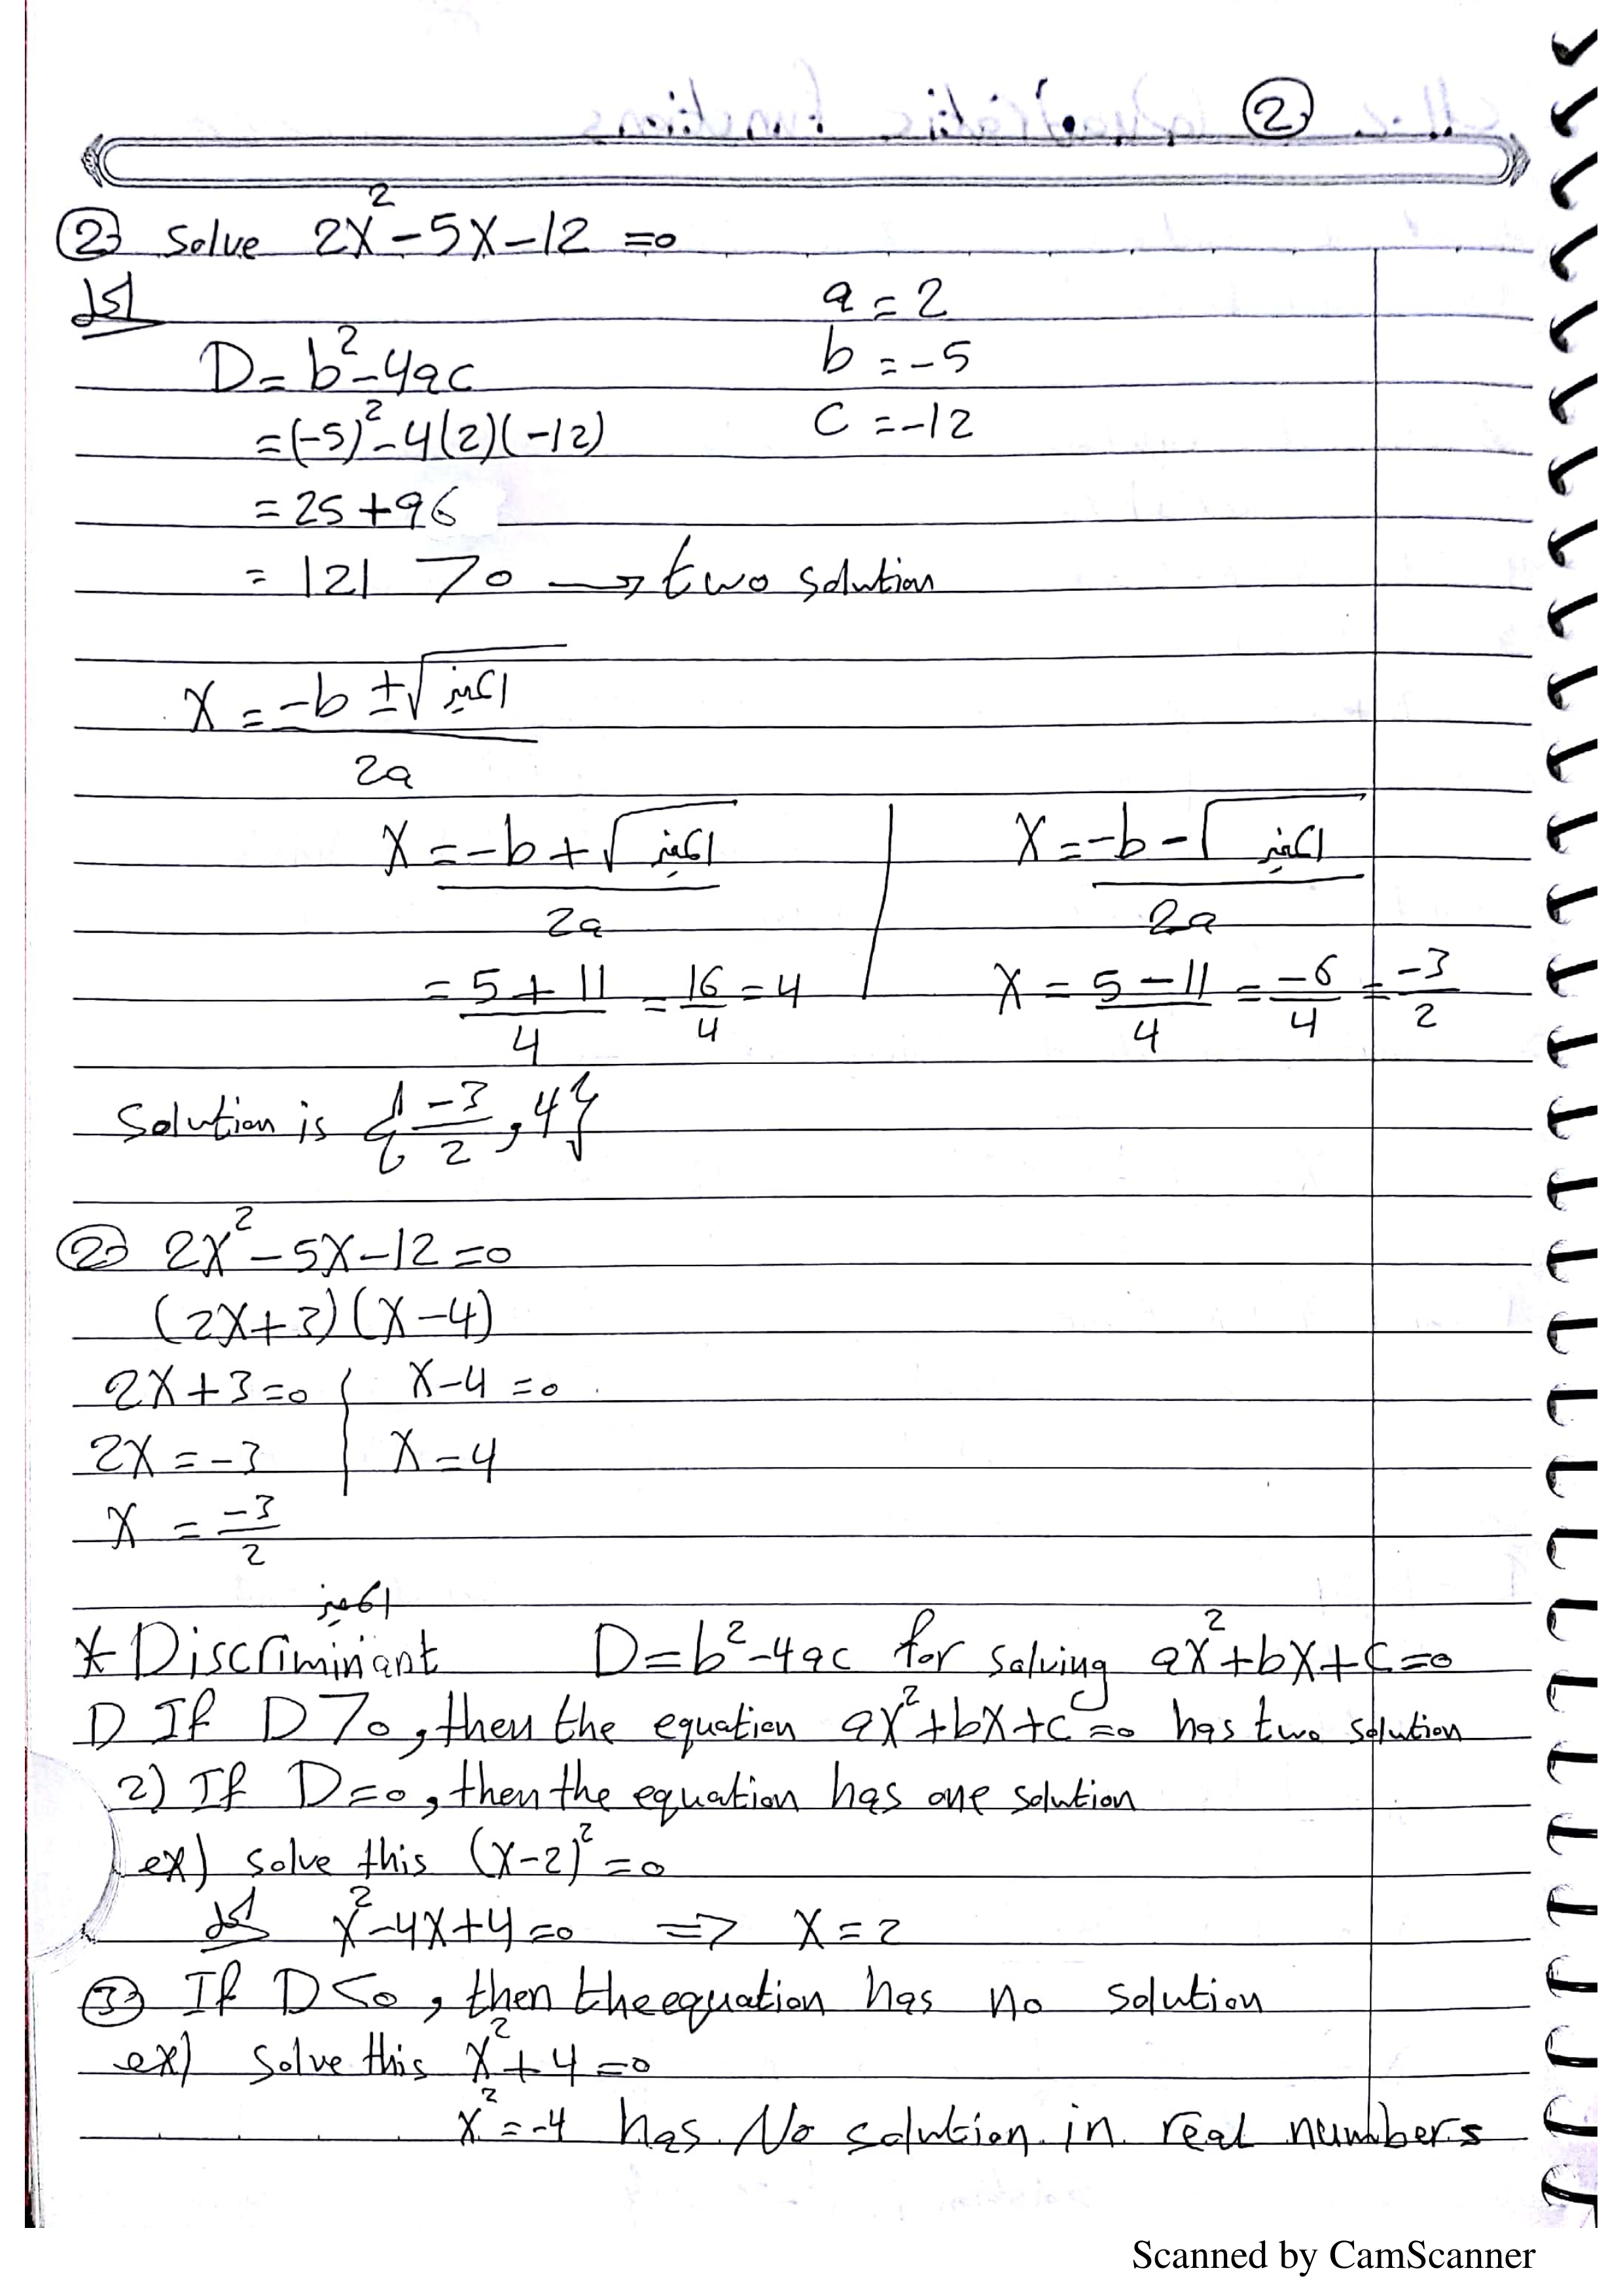 ②
② Solve 2x²-5x-12=0
الحل
a=2
D=b²-4ac
b=-5
=(-5)²-4(2)(-12)
c=-12
=25+96
=121 >0 → two solution
x=-b±√المميز
2a
x=-b+√المميز
x=-b-√المميز
2a
2a
=5+11/4 =16/4=4
x=5-11/4=-6/4=-3/2
Solution is {-3/2, 4}
② 2x²-5x-12=0
(2x+3)(x-4)
2x+3=0 | x-4=0
2x=-3 | x=4
x=-3/2
المميز
* Discriminant D=b²-4ac for solving ax²+bx+c=0
1) If D>0, then the equation ax²+bx+c=0 has two solution
2) If D=0, then the equation has one solution
ex) solve this (x-2)²=0
الحل x²-4x+4=0 => x=2
③ If D<0, then the equation has no solution
ex) solve this x²+4=0
x²=-4 has No solution in real numbers
Scanned by CamScanner